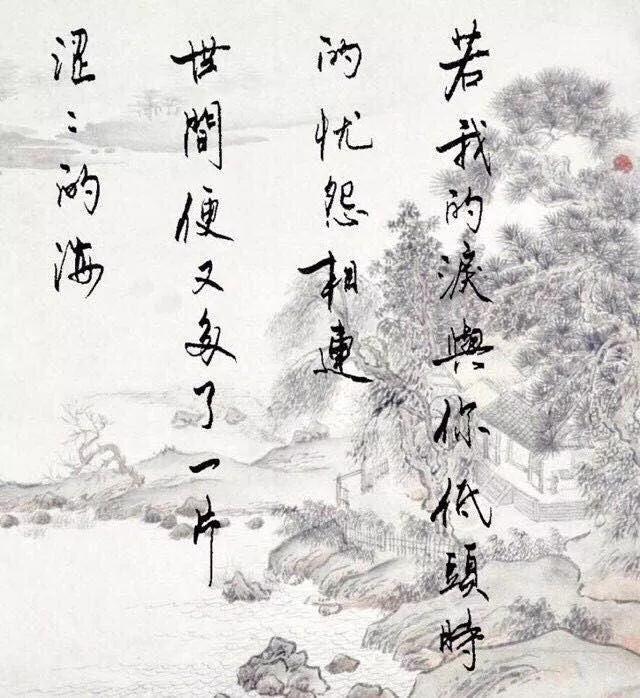 若我的淚與你低頭時
的忧怨相連
世間便又多了一片
涩々的海